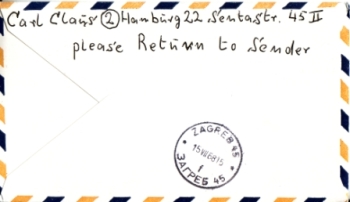 Carl Claus ② Hamburg 22 Sentastr. 45 II
please Return to Sender
ZAGREB 45
15 VII 68 15
f
ЗАГРЕБ 45